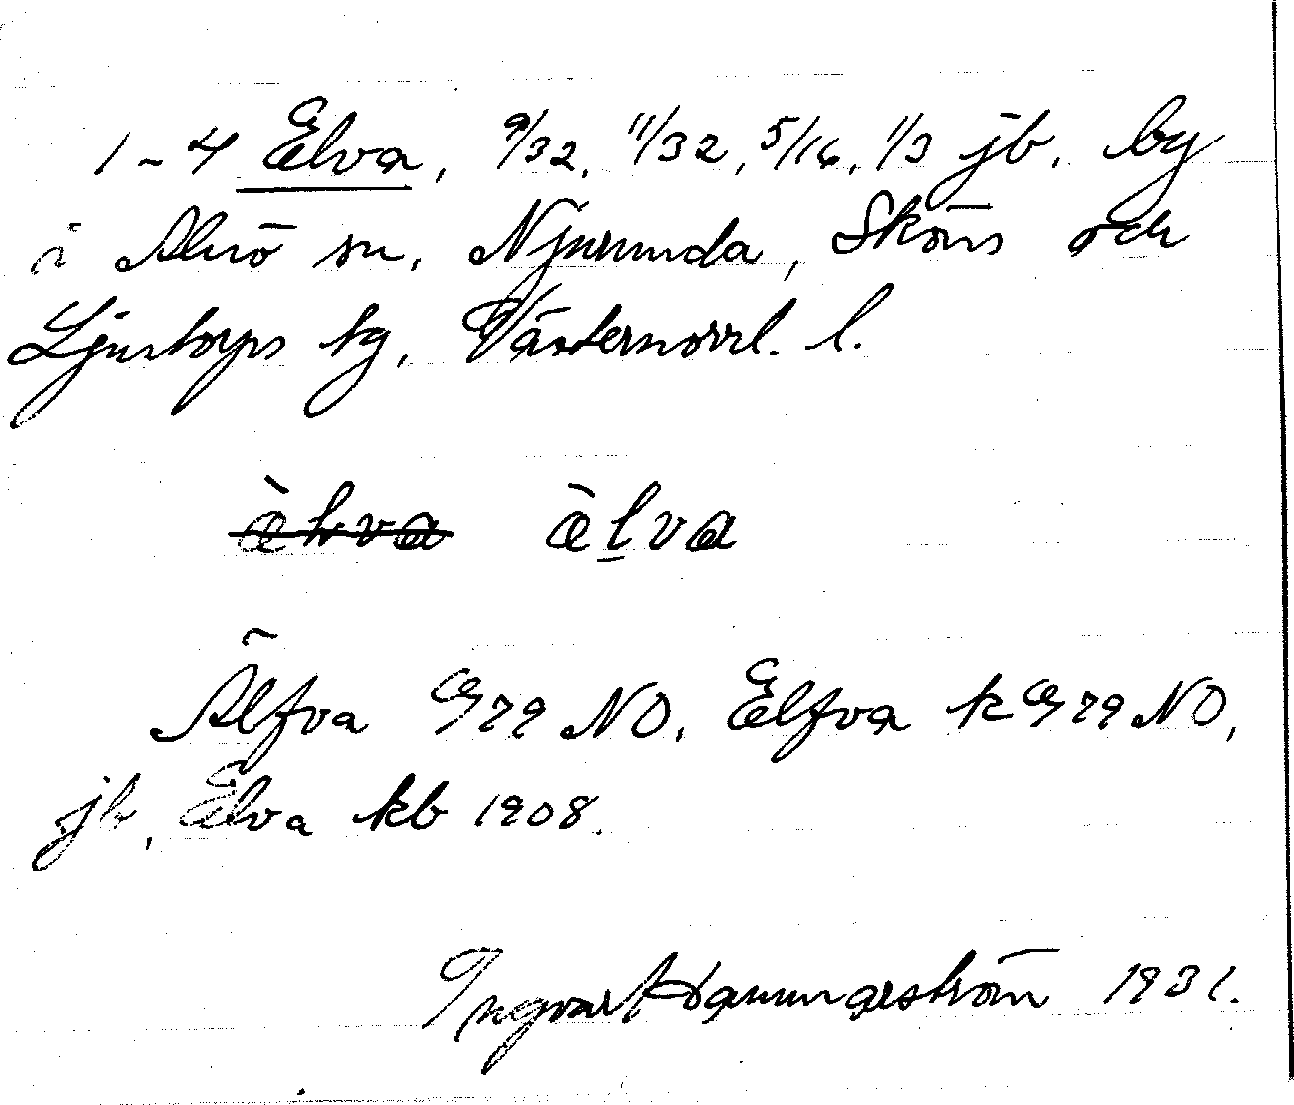 1-4 Elva, 9/32, 11/32, 5/16, 1/3 jb. by
i Alnö sn, Njurunda, Sköns och
Ljustorps tg, Västernorrl. l.
æ̀ḻva
Älfva G 79 NO, Elfva k G 79 NO,
jb, Elva kb 1908.
Ingvar Hammarström 1931.